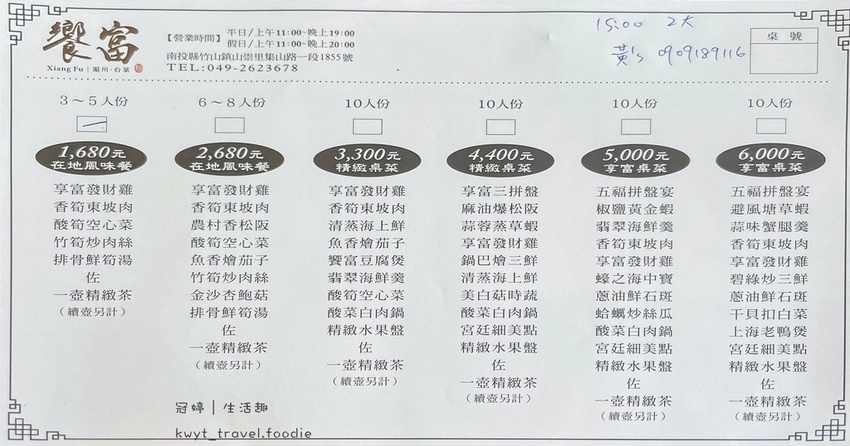 饗富
Xiang Fu｜滬川·台菜
【營業時間】 平日/上午11:00~晚上19:00
假日/上午11:00~晚上20:00
南投縣竹山鎮山崇里集山路一段1855號
TEL:049-2623678
15:00 2大
黃's 0909189116
桌號
3～5人份
1,680元
在地風味餐
享富發財雞
香筍東坡肉
酸筍空心菜
竹筍炒肉絲
排骨鮮筍湯
佐
一壺精緻茶
(續壺另計)
6～8人份
2,680元
在地風味餐
享富發財雞
香筍東坡肉
農村香松阪
酸筍空心菜
魚香燴茄子
竹筍炒肉絲
金沙杏鮑菇
排骨鮮筍湯
佐
一壺精緻茶
(續壺另計)
10人份
3,300元
精緻桌菜
享富發財雞
香筍東坡肉
清蒸海上鮮
魚香燴茄子
饗富豆腐煲
翡翠海鮮羹
酸筍空心菜
酸菜白肉鍋
精緻水果盤
佐
一壺精緻茶
(續壺另計)
10人份
4,400元
精緻桌菜
享富三拼盤
麻油爆松阪
蒜蓉蒸草蝦
享富發財雞
鍋巴燴三鮮
清蒸海上鮮
美白菇時蔬
酸菜白肉鍋
宮廷細美點
精緻水果盤
佐
一壺精緻茶
(續壺另計)
10人份
5,000元
享富桌菜
五福拼盤宴
椒鹽黃金蝦
翡翠海鮮羹
香筍東坡肉
享富發財雞
蠔之海中寶
蔥油鮮石斑
蛤蠣炒絲瓜
酸菜白肉鍋
宮廷細美點
精緻水果盤
佐
一壺精緻茶
(續壺另計)
10人份
6,000元
享富桌菜
五福拼盤宴
避風塘草蝦
蒜味蟹腿羹
香筍東坡肉
享富發財雞
碧綠炒三鮮
蔥油鮮石斑
干貝扣白菜
上海老鴨煲
宮廷細美點
精緻水果盤
佐
一壺精緻茶
(續壺另計)
冠婷｜生活趣
kwyt_travel.foodie